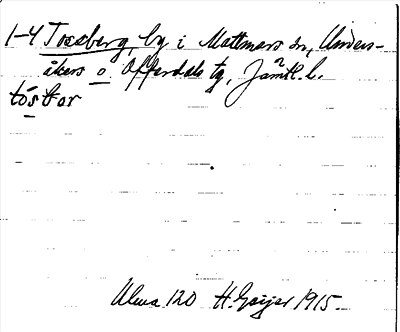 1-4 Tossberg, by i Mattmars sn, Unders-
åkers o. Offerdals tg, Jämtl. l.
tósbor
Ulma 120 H. Geijer 1915.